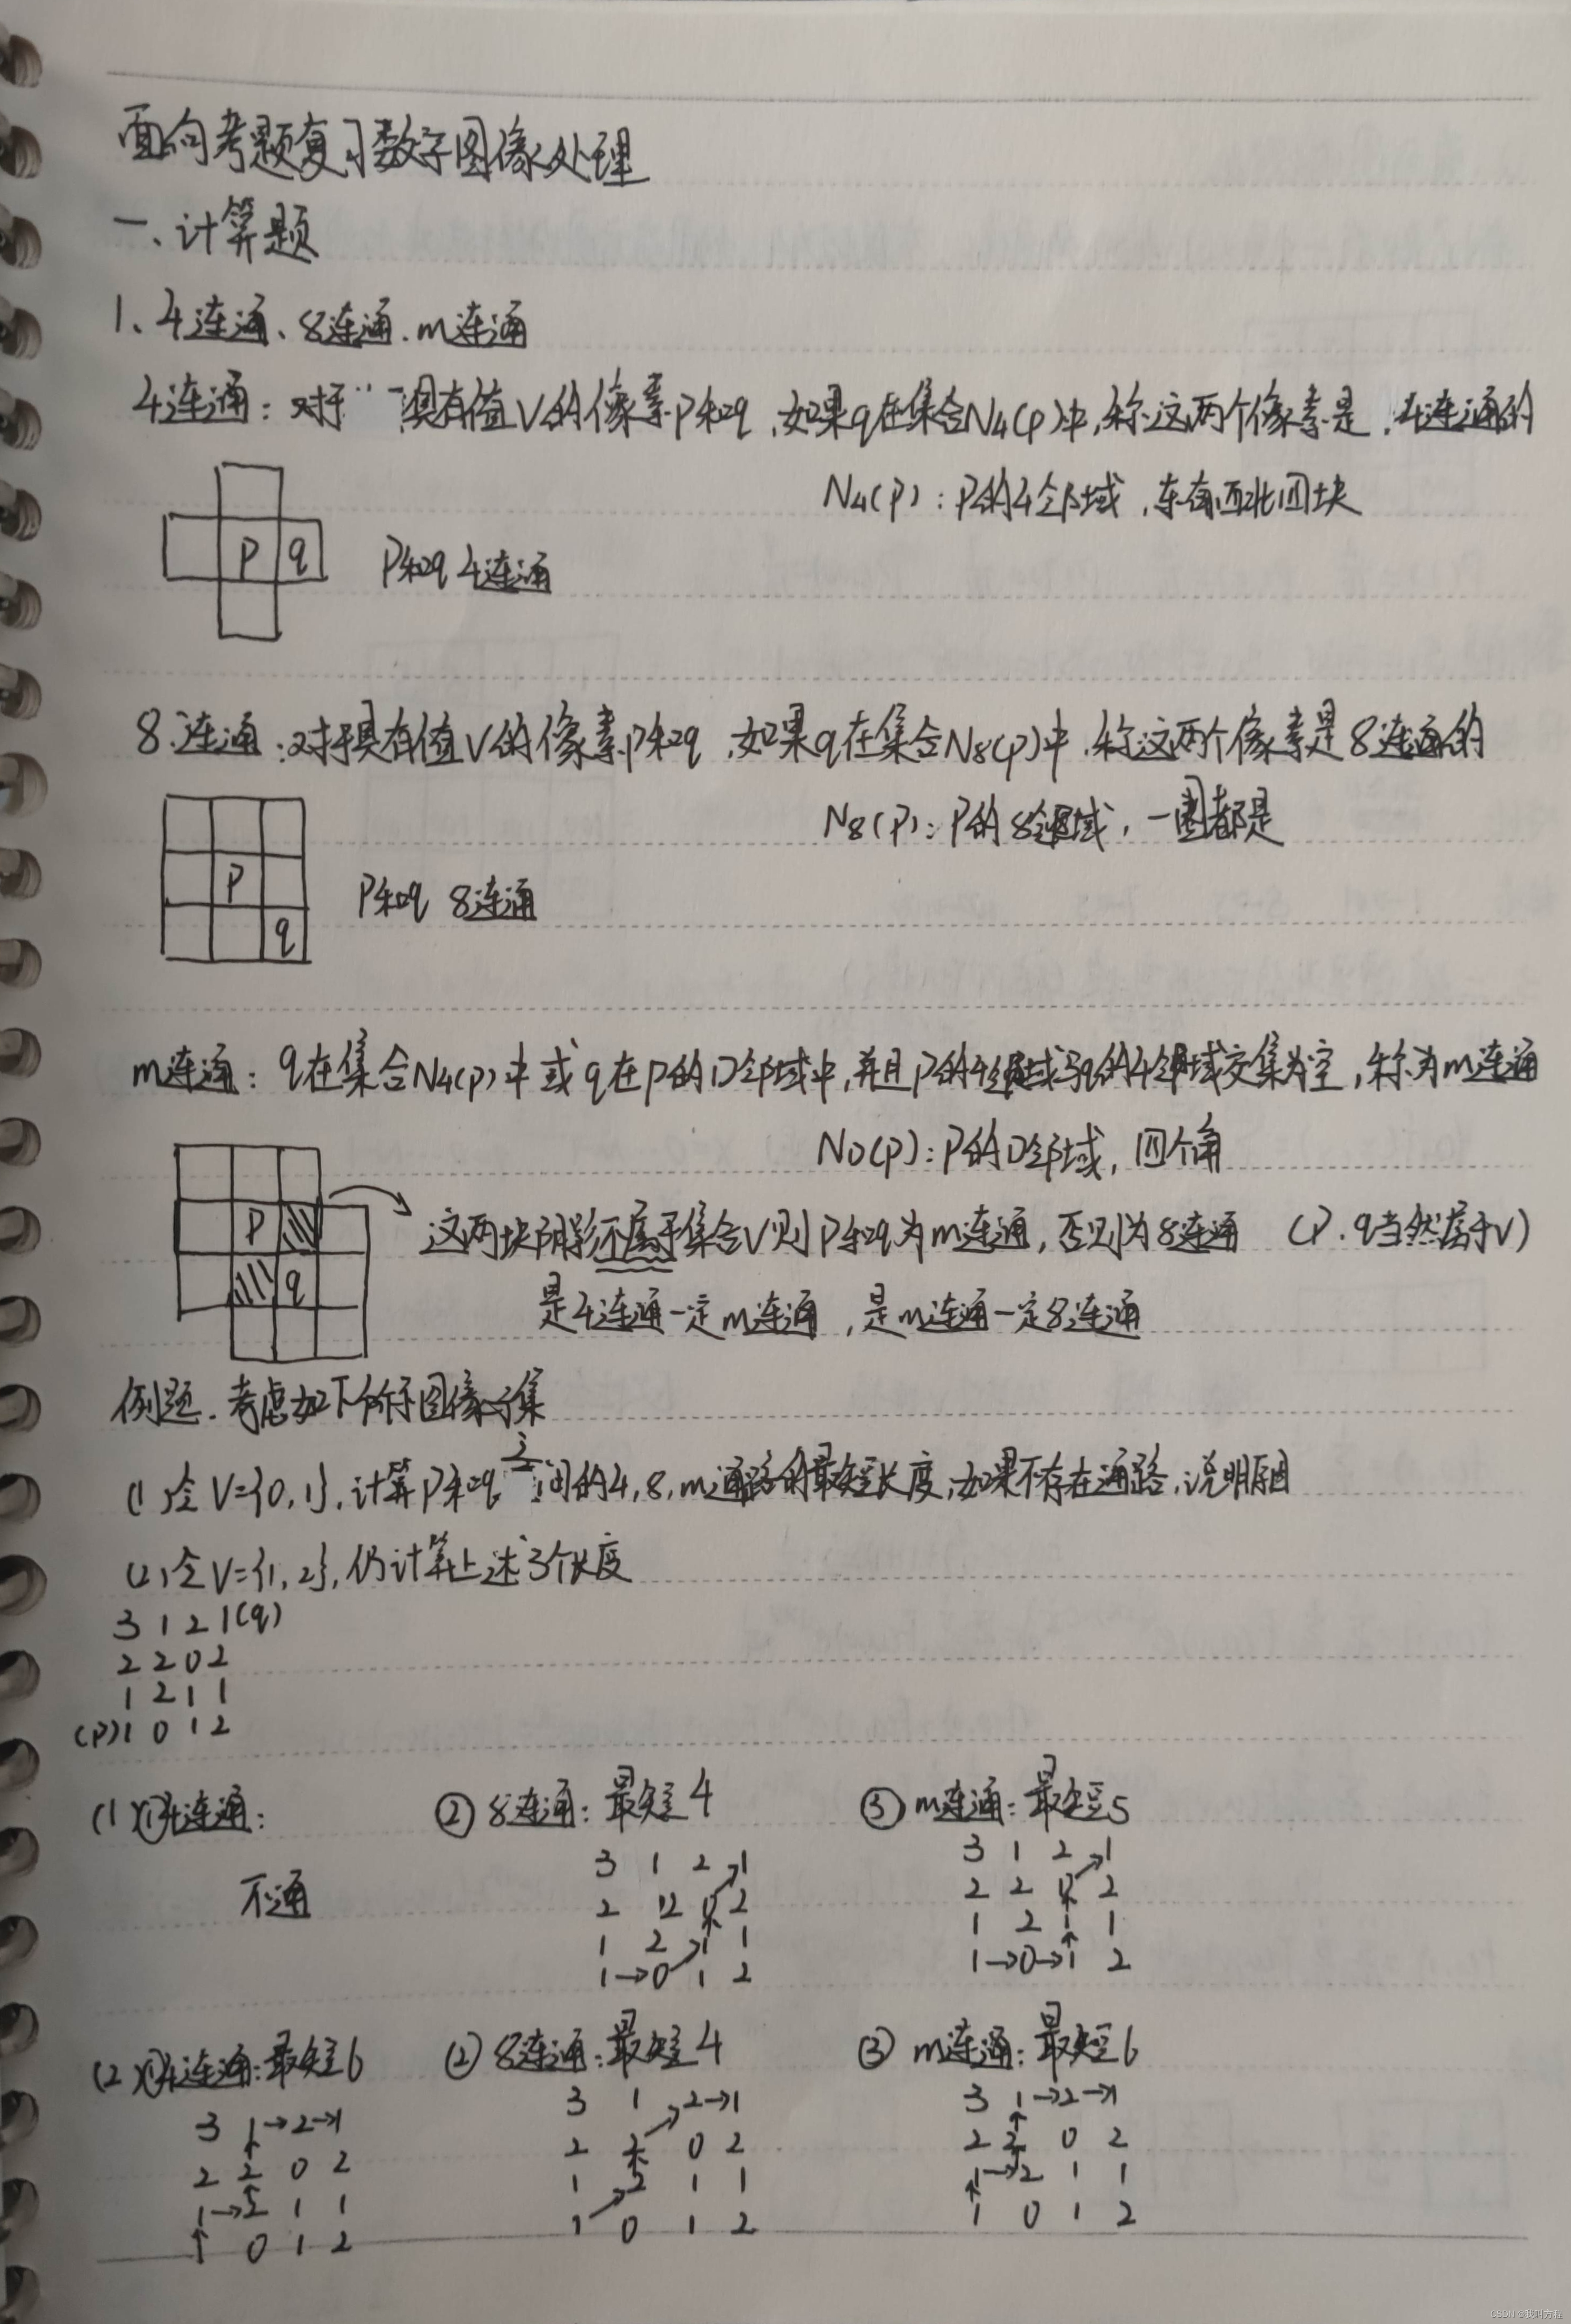 面向考题复习数字图像处理
一、计算题
1、4连通、8连通、m连通
4连通:对于具有值V的像素p和q,如果q在集合N4(p)中,称这两个像素是,4连通的
N4(P):P的4邻域,东南西北四块
p q
P和q 4连通
8连通:对于具有值V的像素p和q,如果q在集合N8(p)中,称这两个像素是8连通的
N8(P):P的8邻域,一圈都是
P
P和q 8连通
q
m连通:q在集合N4(p)中或q在P的D邻域中,并且p的4邻域与q的4邻域交集为空,称为m连通
ND(P):P的D邻域,四个角
P
这两块阴影不属于集合V则P和q为m连通,否则为8连通 (P、q当然属于V)
q
是4连通一定m连通,是m连通一定8连通
例题.考虑如下所示图像子集
(1)令V={0,1},计算p和q之间的4,8,m通路的最短长度,如果不存在通路,说明原因
(2)令V={1,2},仍计算上述3个长度
3 1 2 1(q)
2 2 0 2
1 2 1 1
(P)1 0 1 2
(1)①4连通: ②8连通:最短4 ③m连通:最短5
不通
3 1 2 1 3 1 2 1
2 2 0 2 2 2 0 2
1 2 1 1 1 2 1 1
1→0 1 2 1→0→1 2
(2)①4连通:最短6 ②8连通:最短4 ③m连通:最短6
3 1→2→1 3 1 2→1 3 1→2→1
2 2 0 2 2 2 0 2 2 2 0 2
1→2 1 1 1 2 1 1 1→2 1 1
0 1 2 1 0 1 2 1 0 1 2
CSDN @我叫方程